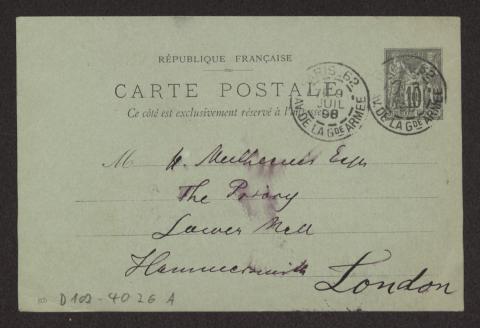 RÉPUBLIQUE FRANÇAISE
CARTE POSTALE
Ce côté est exclusivement réservé à l'
PARIS _ 62
9
JUIL
98
AV. DE LA Gde ARMÉE
10
62
AV. DE LA Gde ARMÉE
M H. Muthesius Esqr
The Priory
Lower Mall
Hammersmith
London
D 102 - 4026 A